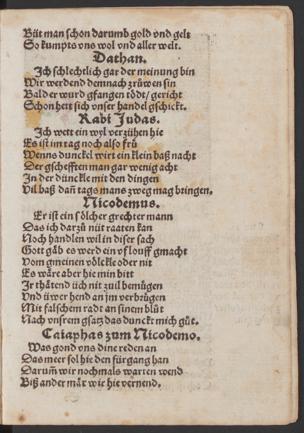 Büt man schon darumb gold vnd gelt
So kumpts vns wol vnd aller welt.
Dathan.
Jch schlechtlich gar der meinung bin
Wir werdend demnach zrüwen sin
Bald er wurd gfangen tödt/ gericht
Schon hett sich vnser handel gschickt.
Rabi Judas.
Jch wett ein wyl verzühen hie
Es ist im tag noch also frü
Wenns dunckel wirt ein klein baß nacht
Der gschefften man gar wenig acht
Jn der dünckle mit den dingen
Vil baß dañ tags mans zweg mag bringen.
Nicodemus.
Er ist ein sölcher grechter mann
Das ich darzů nüt raaten kan
Noch handlen wil in diser sach
Gott gäb es werd ein vflouff gmacht
Vom gmeinen völckle oder nit
Es wäre aber hie min bitt
Jr thätend üch nit zuil bemügen
Vnd üwer hend an jm verbrügen
Mit falschem radt an sinem blůt
Nach vnsrem gsatz das dunckt mich gůt.
Caiaphas zum Nicodemo.
Was gond vns dine reden an
Das meer sol hie den fürgang han
Darum̃ wir nochmals warten wend
Biß ander mär wie hie vernend.